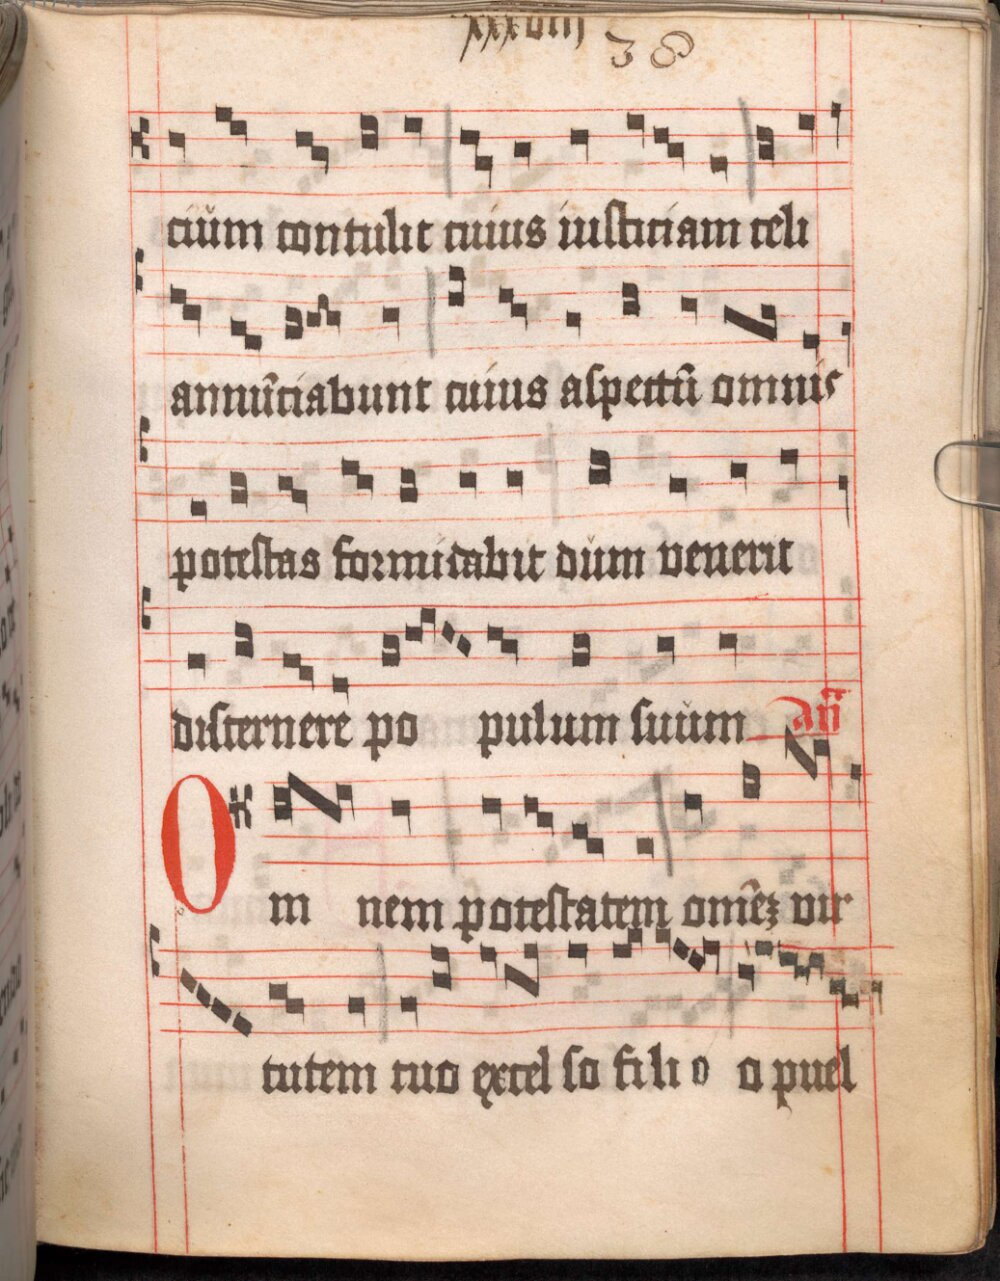 xxxviii 38
ciūm contulit cuius iusticiam celi
annūciabunt cuius aspectū omnis
potestas formidabit dum venerit
discernere po pulum suum añ
Om nem potestatem om̄eꝫ vir
tutem tuo excel so fili o o puel